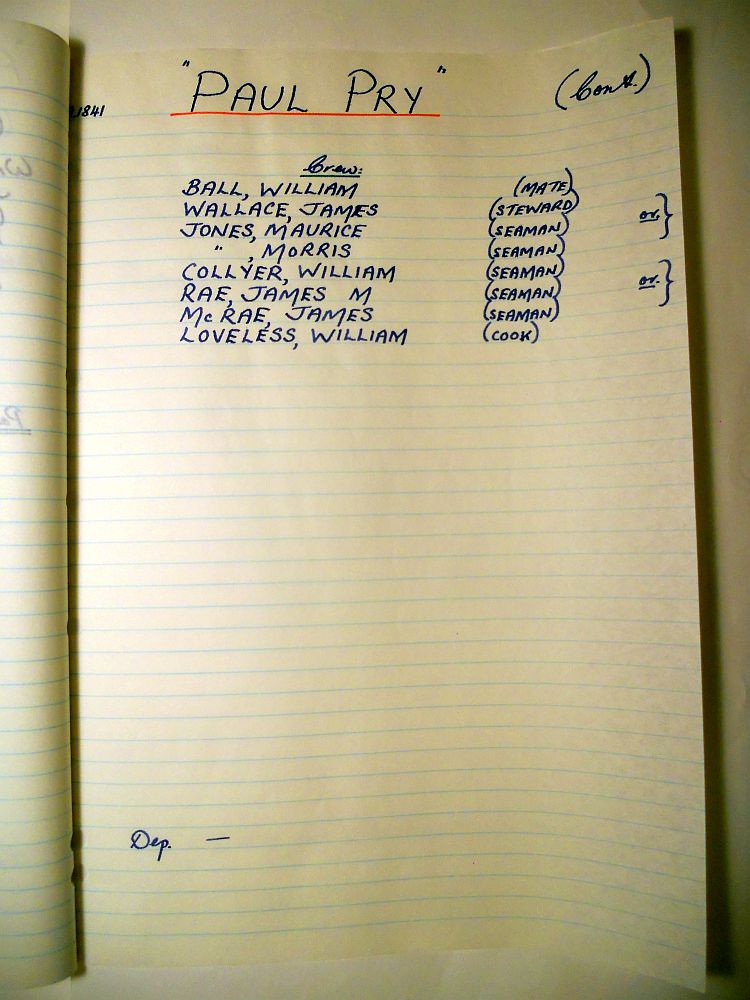 "PAUL PRY" (Cont.)
1841
Crew:
BALL, WILLIAM (MATE)
WALLACE, JAMES (STEWARD)
JONES, MAURICE (SEAMAN) or. }
" , MORRIS (SEAMAN)
COLLYER, WILLIAM (SEAMAN)
RAE, JAMES M (SEAMAN) or. }
McRAE, JAMES (SEAMAN)
LOVELESS, WILLIAM (COOK)
Dep. —